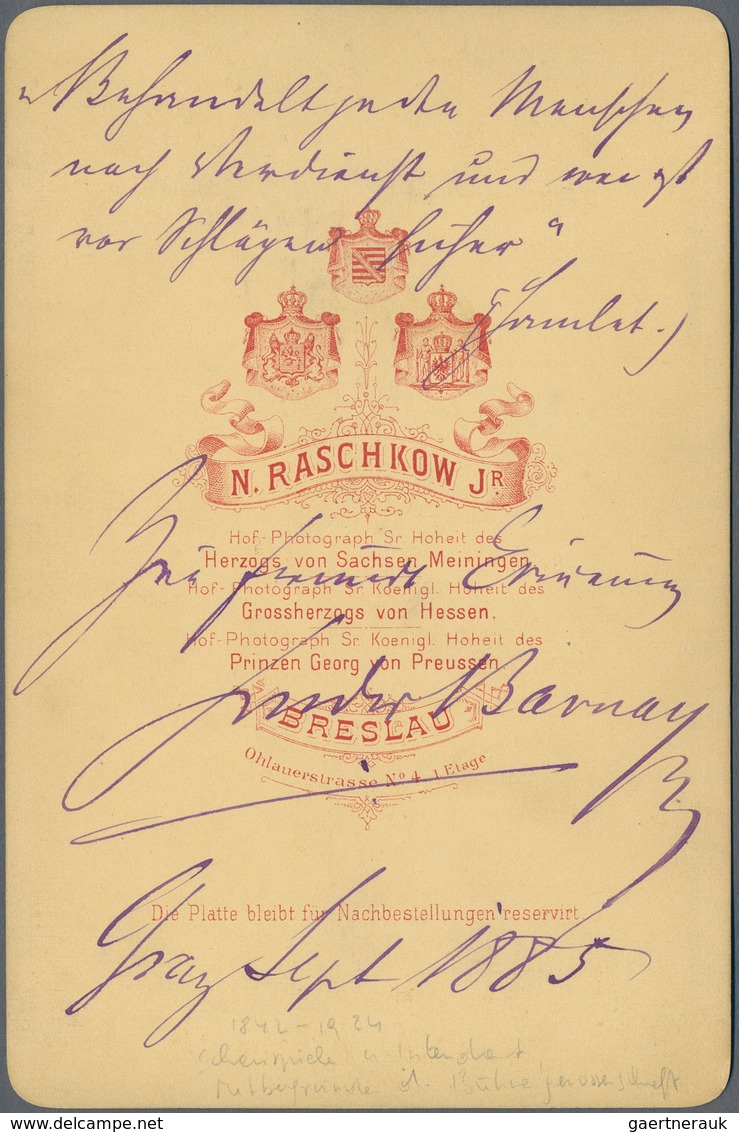 „Behandelt jeden Menschen
nach Verdienst und wer ist
vor Schlägen sicher“
(Hamlet.)
N. RASCHKOW JR.
Hof-Photograph Sr Hoheit des
Herzogs von Sachsen Meiningen
Hof-Photograph Sr Koenigl. Hoheit des
Grossherzogs von Hessen.
Hof-Photograph Sr. Koenigl. Hoheit des
Prinzen Georg von Preussen
Zur freundl Erinnerung
Barnay
BRESLAU
Ohlauerstrasse No 4 I Etage
Die Platte bleibt für Nachbestellungen reservirt
Graz Sept 1885
1842-1924
Schauspieler u Intendant
Mitbegründer d. Bühnengenossenschaft
gaertnerauk